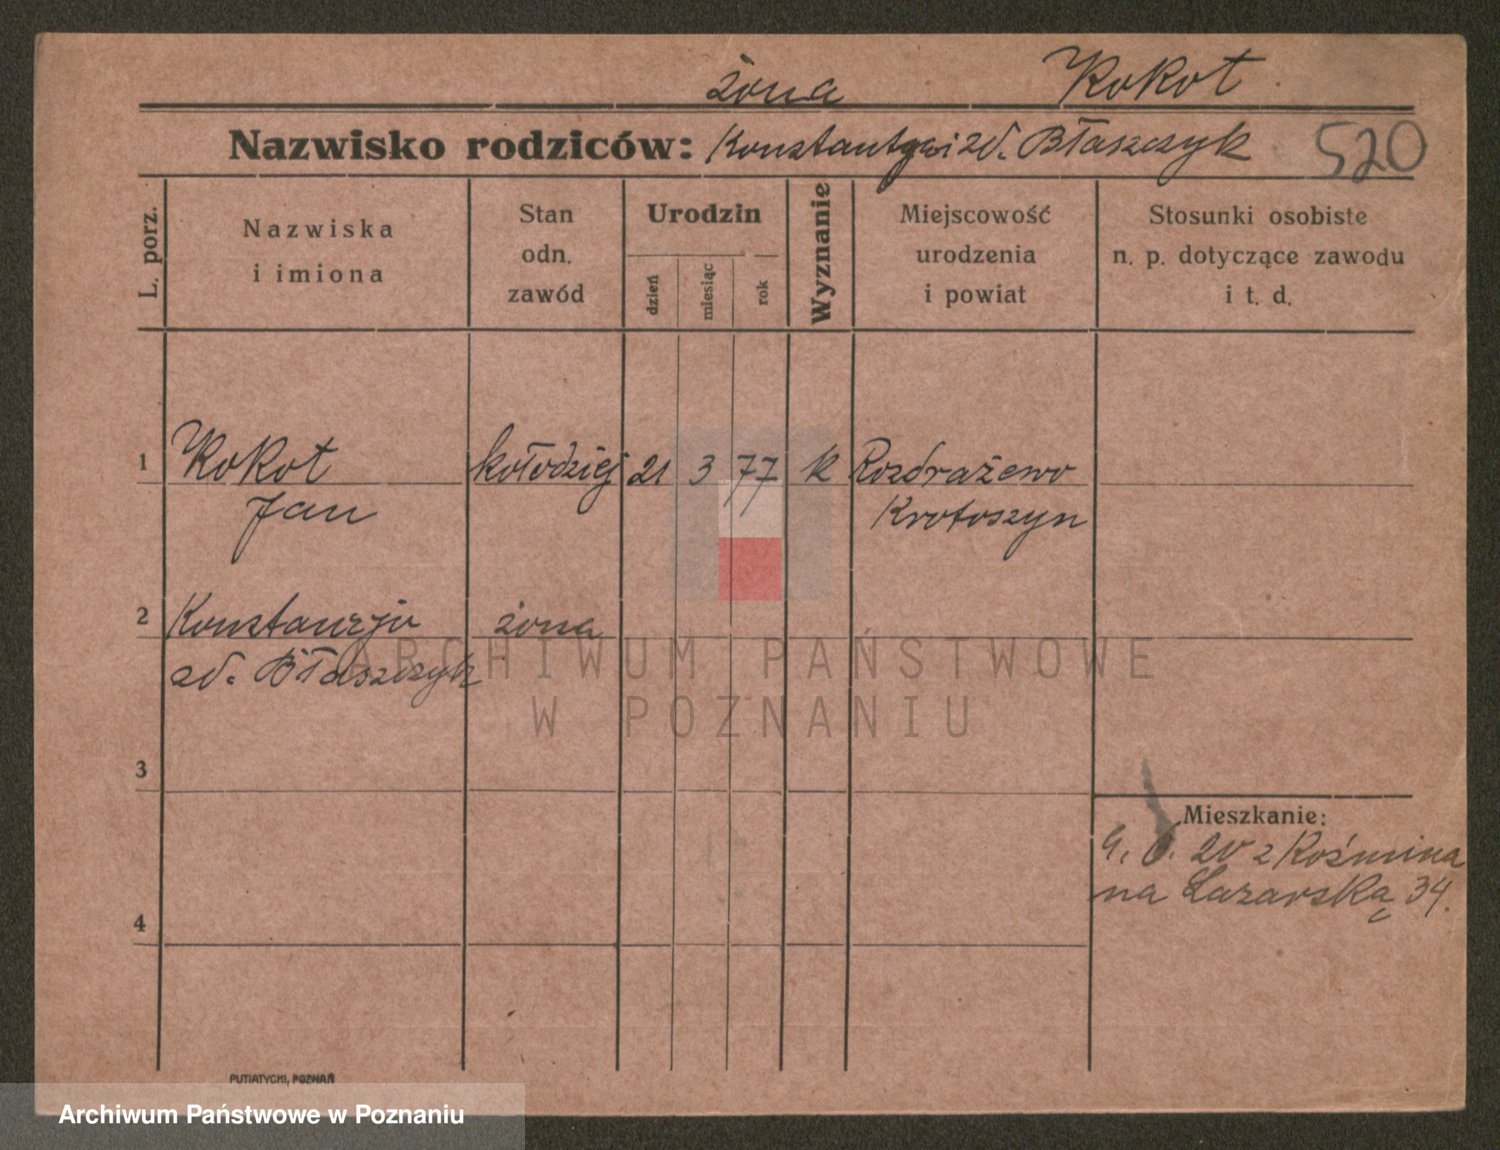 żona Kokot
Nazwisko rodziców: Konstantyn i zd. Błaszczyk 520
L. porz.
Nazwiska
i imiona
Stan
odn.
zawód
Urodzin
dzień
miesiąc
rok
Wyznanie
Miejscowość
urodzenia
i powiat
Stosunki osobiste
n. p. dotyczące zawodu
i t. d.
1 Kokot kołodziej 21 3 77 k Rozdrażewo
Jan Krotoszyn
2 Konstancja żona
zd. Błaszczyk
3
Mieszkanie:
9. 6. 20 z Koźmina
na Łazarską 34.
4
PUTIATYCKI, POZNAŃ
ARCHIWUM PAŃSTWOWE
W POZNANIU
Archiwum Państwowe w Poznaniu